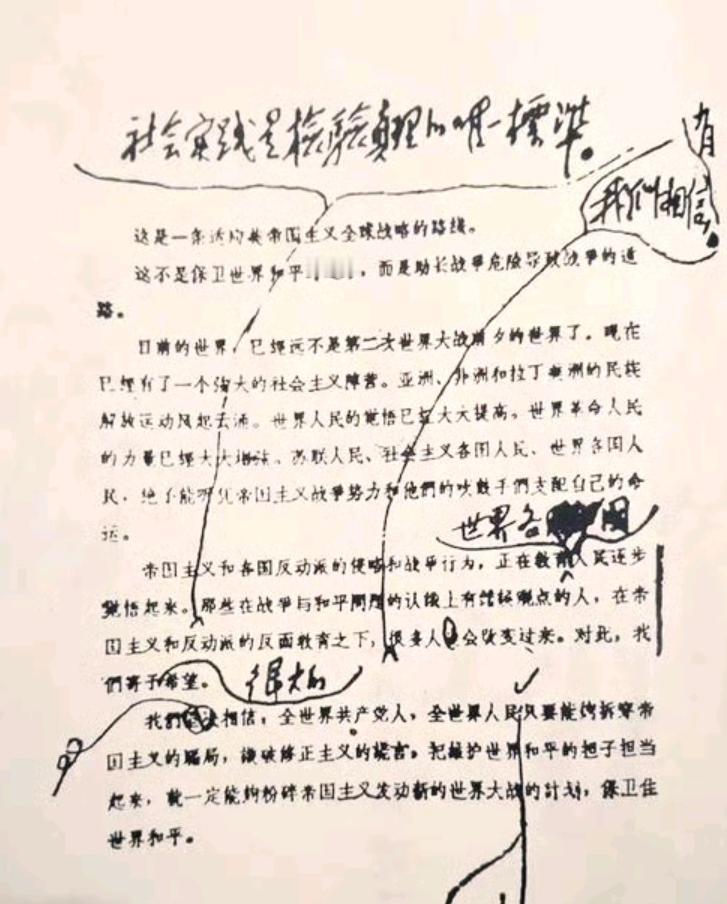 社会实践是检验真理的唯一标准。
有
我们相信，
这是一条适应美帝国主义全球战略的路线。
这不是保卫世界和平，而是助长战争危险导致战争的道
路。
目前的世界，已經远不是第二次世界大战前夕的世界了。现在
已經有了一个强大的社会主义陣营。亚洲、非洲和拉丁美洲的民族
解放运动风起云涌。世界人民的觉悟已經大大提高。世界革命人民
的力量已經大大增强。苏联人民、社会主义各国人民、世界各国人
民，絶不能听凭帝国主义战爭势力和他們的吹鼓手們支配自己的命
运。
世界各国
帝国主义和各国反动派的侵略和战争行为，正在教育人民逐步
觉悟起来。那些在战爭与和平問題的认識上有錯誤观点的人，在帝
国主义和反动派的反面教育之下，很多人会改变过来。对此，我
們寄予希望。
很大的
我們相信，全世界共产党人，全世界人民只要能够拆穿帝
国主义的騙局，識破修正主义的謊言，把維护世界和平的担子担当
起来，就一定能够粉碎帝国主义发动新的世界大战的計划，保卫住
世界和平。